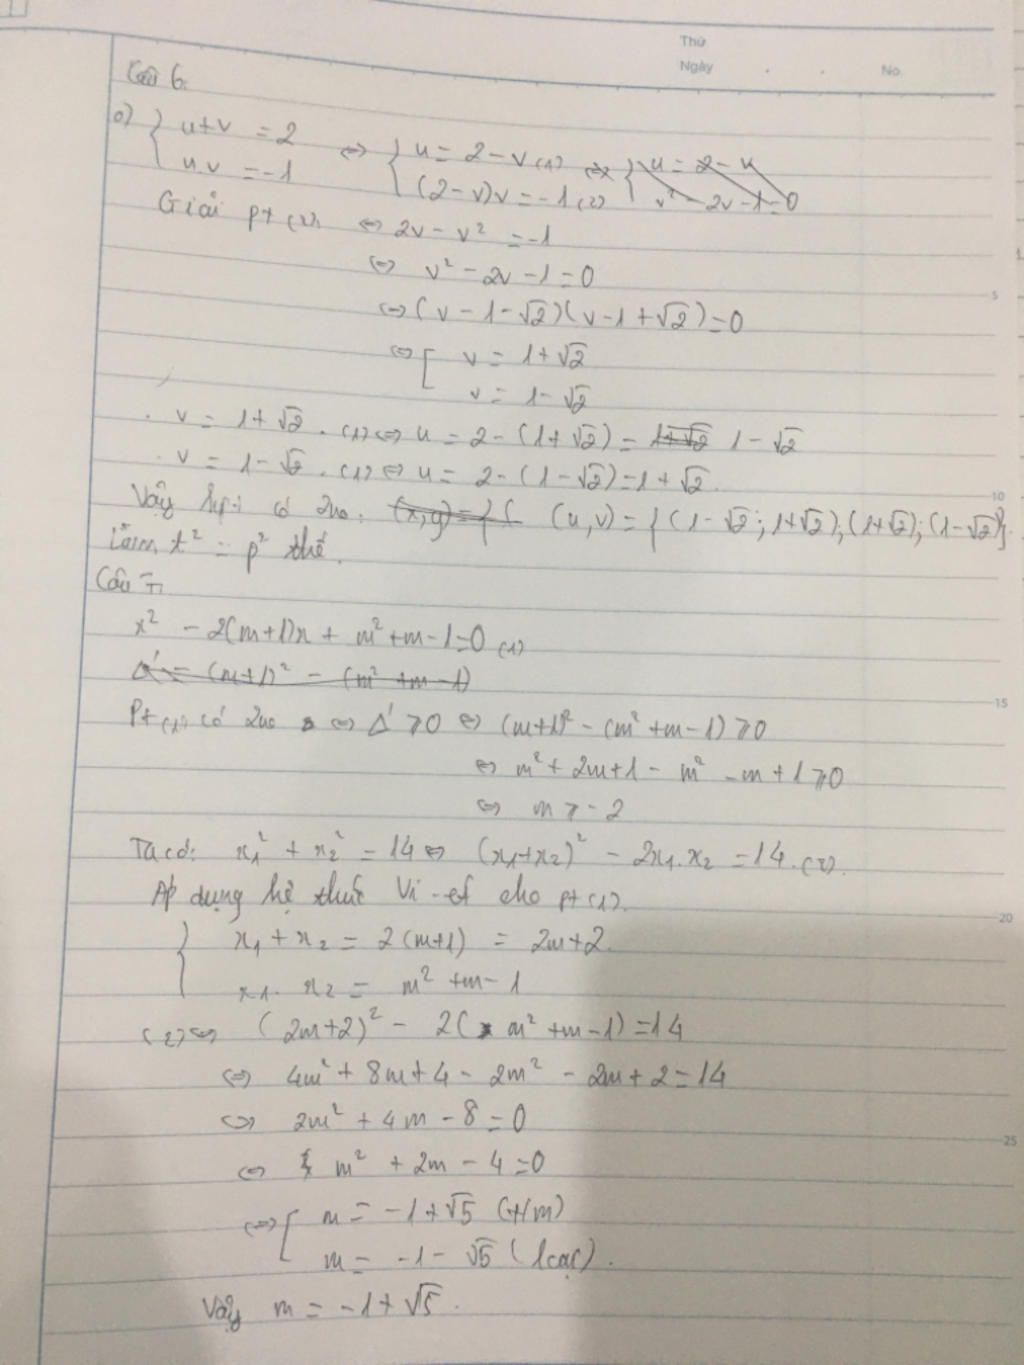 Thứ
Ngày . . No.
Câu 6:
a) { u+v = 2
uv = -1 ⇔ { u = 2 - v (1)
(2-v)v = -1 (2) ⇔ { u = 2 - v
v² - 2v - 1 = 0
Giải pt (2) ⇔ 2v - v² = -1
⇔ v² - 2v - 1 = 0
⇔ (v - 1 - √2)(v - 1 + √2) = 0
⇔ [ v = 1 + √2
v = 1 - √2
. v = 1 + √2 . (1) ⇔ u = 2 - (1 + √2) = 1 + √2 1 - √2
. v = 1 - √2 . (1) ⇔ u = 2 - (1 - √2) = 1 + √2.
Vậy hpt có 2no: (x,y) = { ( (u,v) = { (1 - √2 ; 1 + √2) ; (1 + √2) ; (1 - √2) }.
t² = p² thế.
Câu 7:
x² - 2(m+1)x + m² + m - 1 = 0 (1)
Δ' = (m+1)² - (m² + m - 1)
Pt (1) có 2no ⇔ Δ' ≥ 0 ⇔ (m+1)² - (m² + m - 1) ≥ 0
⇔ m² + 2m + 1 - m² - m + 1 ≥ 0
⇔ m ≥ -2
Ta có: x₁² + x₂² = 14 ⇔ (x₁+x₂)² - 2x₁.x₂ = 14. (2).
Áp dụng hệ thức Vi-et cho pt (1).
{ x₁ + x₂ = 2(m+1) = 2m+2.
x₁. x₂ = m² + m - 1
(2) ⇔ (2m+2)² - 2(m² + m - 1) = 14
⇔ 4m² + 8m + 4 - 2m² - 2m + 2 = 14
⇔ 2m² + 4m - 8 = 0
⇔ m² + 2m - 4 = 0
⇔ [ m = -1 + √5 (t/m)
m = -1 - √5 (loại).
Vậy m = -1 + √5.
5
10
15
20
25